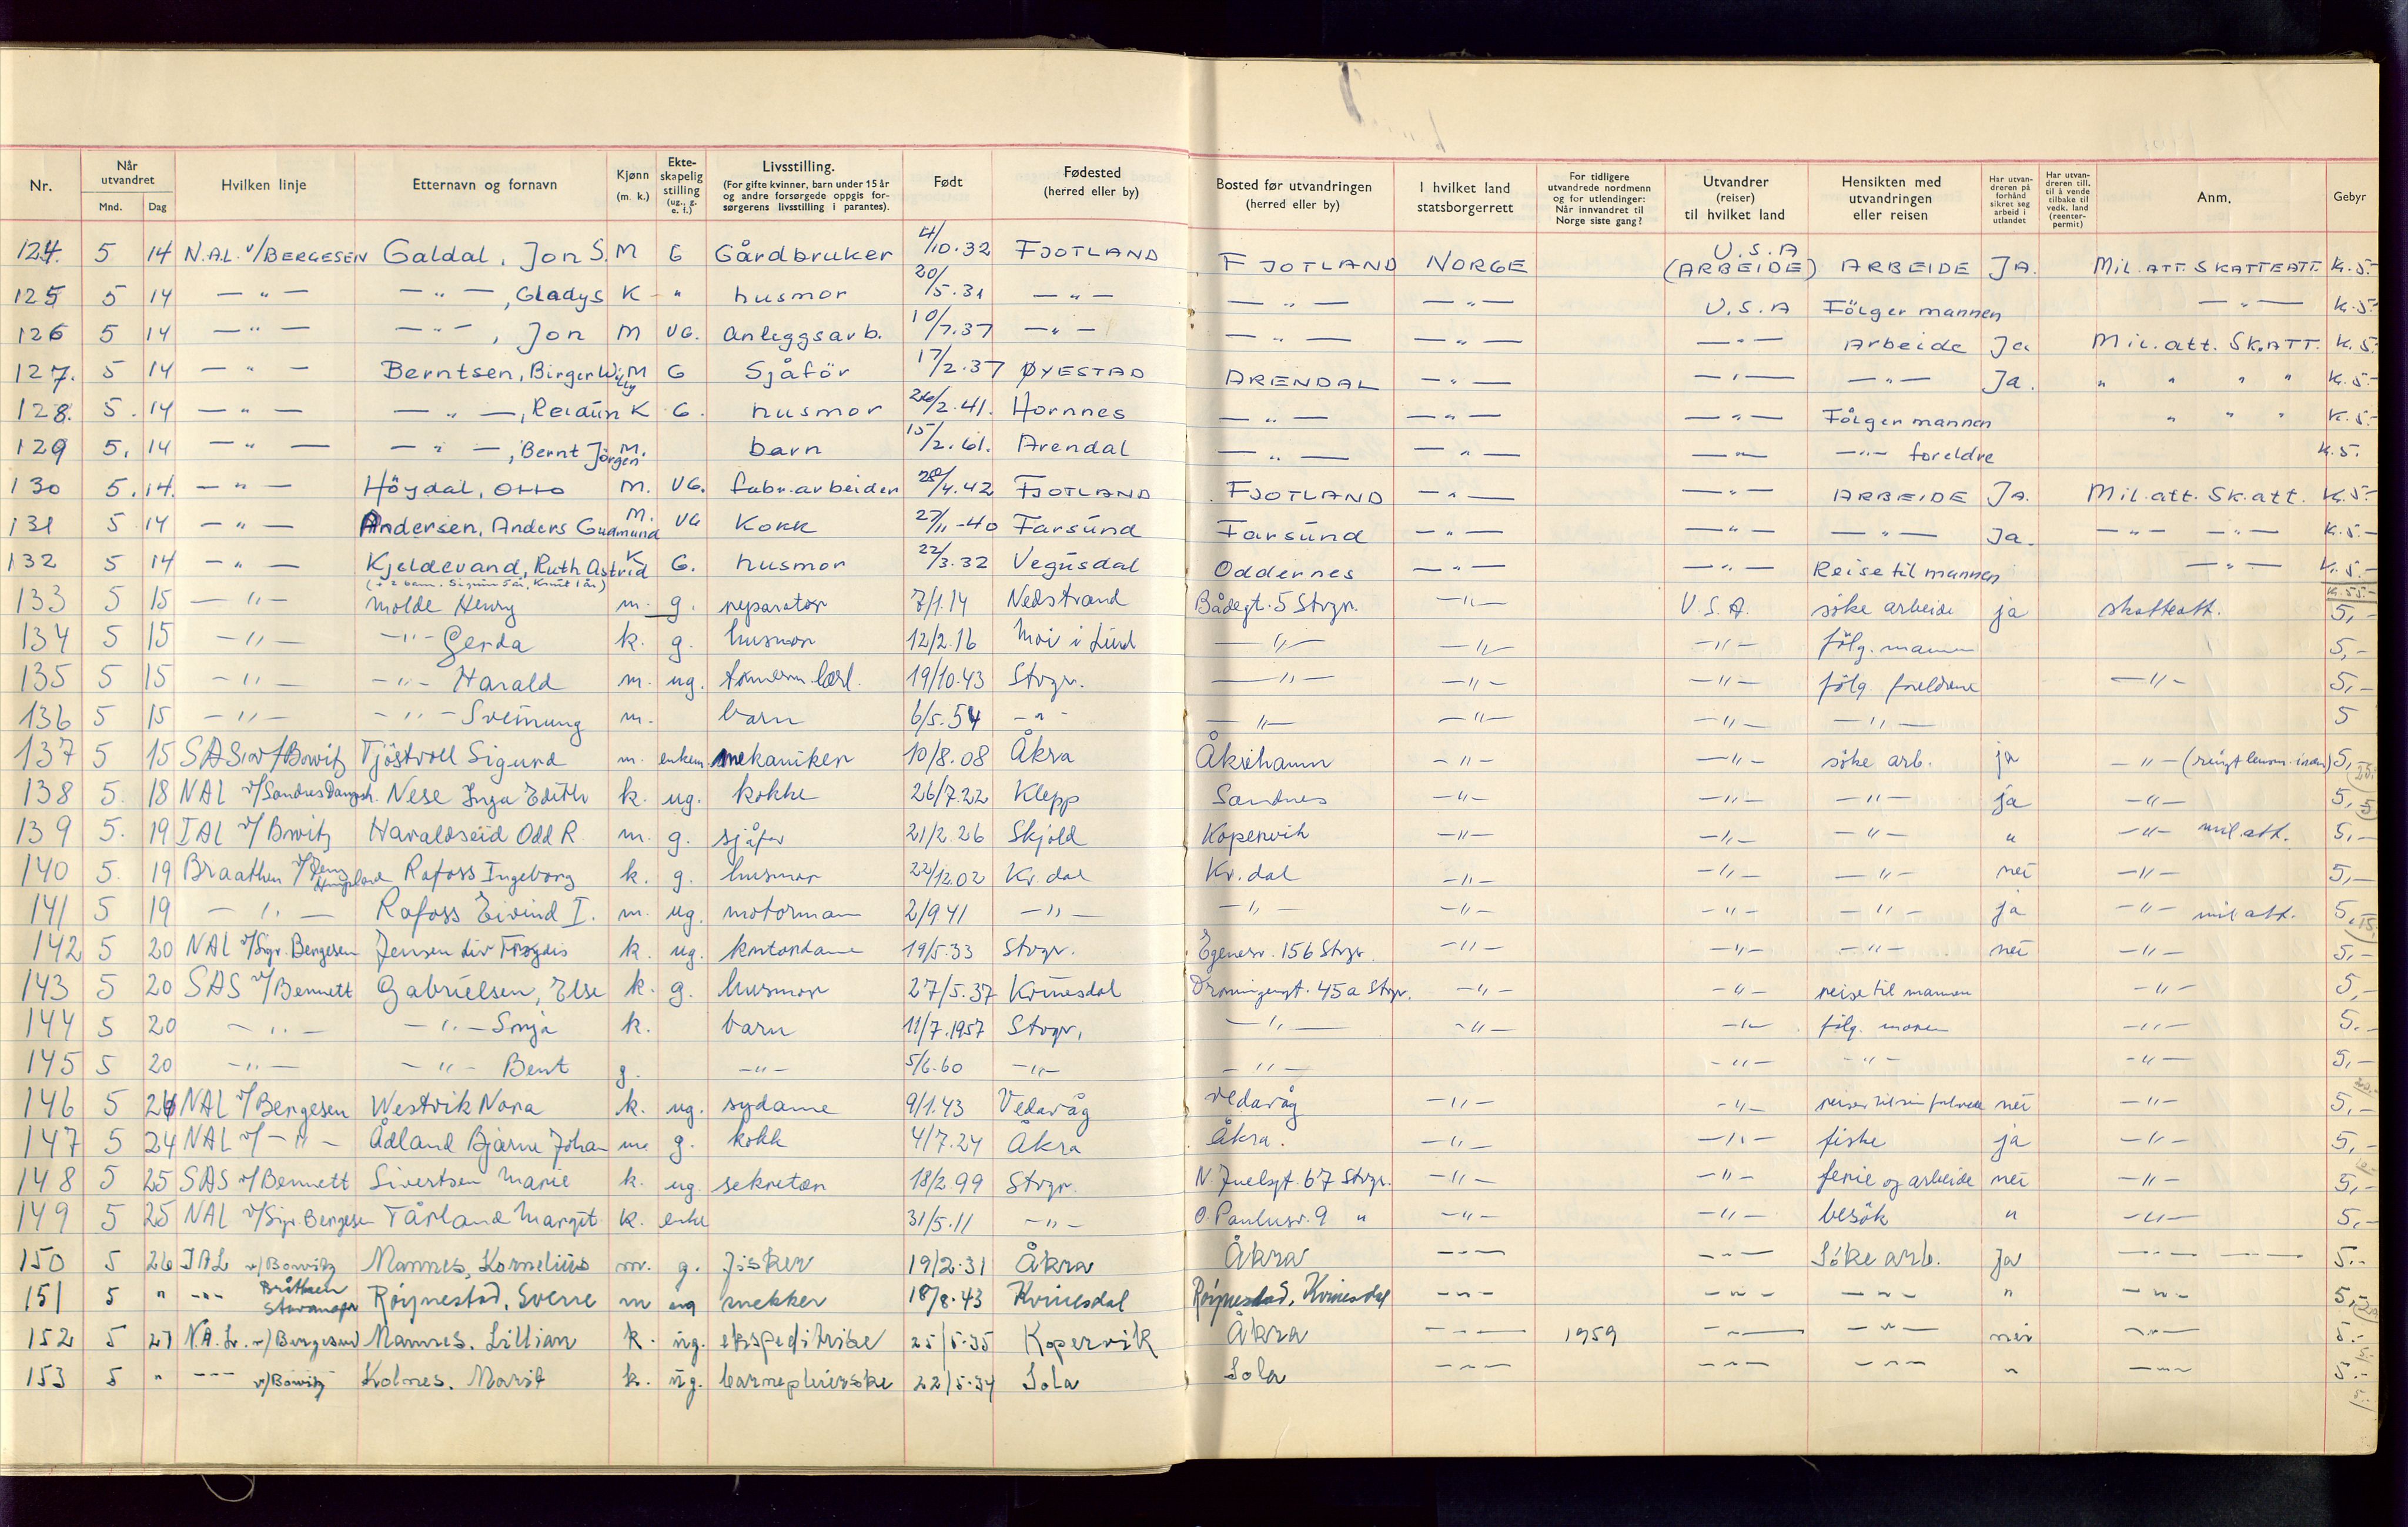 Nr. | Når utvandret Mnd. Dag | Hvilken linje | Etternavn og fornavn | Kjønn (m. k.) | Ekteskapelig stilling (ug., g. e. f.) | Livsstilling. (For gifte kvinner, barn under 15 år og andre forsørgede oppgis forsørgerens livsstilling i parantes). | Født | Fødested (herred eller by) | Bosted før utvandringen (herred eller by) | I hvilket land statsborgerrett | For tidligere utvandrede nordmenn og for utlendinger: Når innvandret til Norge siste gang? | Utvandrer (reiser) til hvilket land | Hensikten med utvandringen eller reisen | Har utvandreren på forhånd sikret seg arbeid i utlandet | Har utvandreren till. til å vende tilbake til vedk. land (reenterpermit) | Anm. | Gebyr
124. 5 14 N.A.L. v/BERGESEN Galdal, Jon S. M G Gårdbruker 4/10.32 FJOTLAND FJOTLAND NORGE U.S.A (ARBEIDE) ARBEIDE JA. Mil. ATT. SKATTEATT. K. 5.-
125 5 14 — " — — " —, Gladys K - " husmor 20/5.31 — " — — " — — " — U.S.A Fölger mannen — " — K. 5.-
126 5 14 — " — — " —, Jon M UG. Anleggsarb. 10/7.37 — " — — " — — " — — " — Arbeide Ja Mil. att. SK.ATT. K. 5.
127. 5 14 — " — Berntsen, Birger Willy M G Sjåför 17/2.37 ØYESTAD ARENDAL — " — — " — — " — Ja. " " " " K. 5.-
128. 5. 14 — " — — " —, Reidun K G. husmor 26/2.41. Hornnes — " — — " — — " — Fölger mannen " " " K. 5.-
129 5. 14 — " — — " —, Bernt Jörgen M. barn 15/2.61. Arendal — " — — " — — " — — " — foreldre K. 5.
130 5. 14. — " — Höydal, Otto M. UG. fabr.arbeider 28/4.42 FJOTLAND FJOTLAND — " — — " — ARBEIDE JA. Mil. att. Sk. att. K. 5.-
131 5 14 — " — Andersen, Anders Gudmund M. UG Kokk 27/11-40 Farsund Farsund — " — — " — — " — Ja. — " — — " — K. 5.-
132 5 14 — " — Kjeldevand, Ruth Astrid K G. husmor 22/3.32 Vegusdal Oddernes — " — — " — Reise til mannen — " — K. 5.-
(+ 2 barn. 5 år, Knut 1 år) K. 55.-
133 5 15 — " — Molde Henry m. g. reparatør 7/1.14 Nedstrand Bådegt. 5 Stvgr. — " — U.S.A. söke arbeide ja skatteatt. 5,-
134 5 15 — " — — " — Gerda k. g. husmor 12/2.16 Moi i Lund — " — — " — — " — fölg. mannen 5,-
135 5 15 — " — — " — Harald m. ug. lærl. 19/10.43 Stvgr. — " — — " — — " — fölg. foreldrene — " — 5,-
136 5 15 — " — — " — Sveinung m. barn 6/5.54 — " — — " — — " — — " — — " — 5
137 5 15 SAS v/Bowitz Tjöstvoll Sigurd m. enkem. mekaniker 10/8.08 Åkra Åkrehamn — " — — " — söke arb. ja — " — 5,-
138 5. 18 NAL v/Sandnes Dampsk. Nese Inga Edith k. ug. kokke 26/7.22 Klepp Sandnes — " — — " — — " — ja — " — 5,-
139 5. 19 IAL v/Bowitz Haraldseid Odd R. m. g. sjåfør 21/2.26 Skjold Kopervik — " — — " — — " — " — " — mil.att. 5,-
140 5. 19 Braathen v/ Rafoss Ingeborg k. g. husmor 22/12.02 Kv.dal Kv.dal — " — — " — — " — nei — " — 5,-
141 5 19 — " — Rafoss Eivind I. m. ug. motormann 2/9 41 — " — — " — — " — — " — — " — ja — " — mil att. 5,- 15,-
142 5 20 NAL v/Sigv. Bergesen Jensen Liv Frøydis k. ug. kontordame 19/5.33 Stvgr. Egenesv. 15b Stvgr. — " — — " — — " — nei — " — 5,-
143 5 20 SAS v/Bennett Gabrielsen, Else k. g. husmor 27/5.37 Kvinesdal Dronningensgt. 45a Stvgr. — " — — " — reise til mannen — " — 5,-
144 5 20 — " — — " — Sonja k. barn 11/7.1957 Stvgr. — " — — " — — " — fölg. moren — " — 5.-
145 5 20 — " — — " — Bent g. — " — 5/6.60 — " — — " — — " — — " — — " — 5,-
146 5 24 NAL v/Bergesen Westvik Nora k. ug. sydame 9/1.43 Vedavåg Vedavåg — " — — " — reiser til sin forlovede nei — " — 5,-
147 5 24 NAL v/ — " — Ådland Bjarne Johan m. g. kokk 4/7.24 Åkra Åkra. — " — — " — fiske ja — " — 5,-
148 5 25 SAS v/Bennett Sivertsen Marie k. ug. sekretær 18/2 99 Stvgr. N. Juelsgt. 67 Stvgr. — " — — " — ferie og arbeide nei — " — 5,-
149 5 25 NAL v/Sigv. Bergesen Tårland Margit k. enke 31/5.11 — " — O. Paulusv. 9 " — " — — " — besök " — " — 5,-
150 5 26 IAL v/Bowitz Mannes, Kornelius m. g. Fisker 19/2.31 Åkra Åkra — " — — " — Söke arb. Ja — " — 5.-
151 5 " — " — Bråthen Stavanger Røynestad, Sverre m ug snekker 18/8.43 Kvinesdal Röynestad, Kvinesdal — " — — " — — " — " — " — 5,- 20
152 5 27 N.A.L. v/Bergesen Mannes. Lillian k. ug. ekspeditrise 25/5.35 Kopervik Åkra — " — 1959 — " — — " — nei — " — 5.-
153 5 " — " — v/Bowitz Kolnes. Marit k. ug. barnepleierske 22/5.34 Sola Sola — " — — " — — " — " — " — 5.-